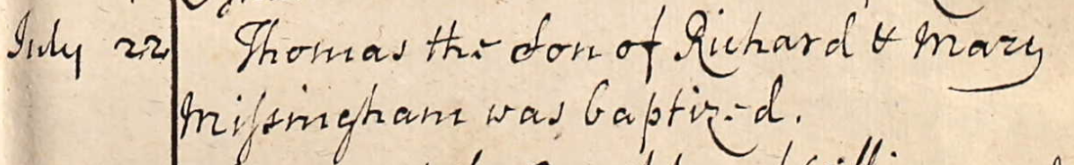 July 22 Thomas the Son of Richard & Mary
Missingham was baptized.